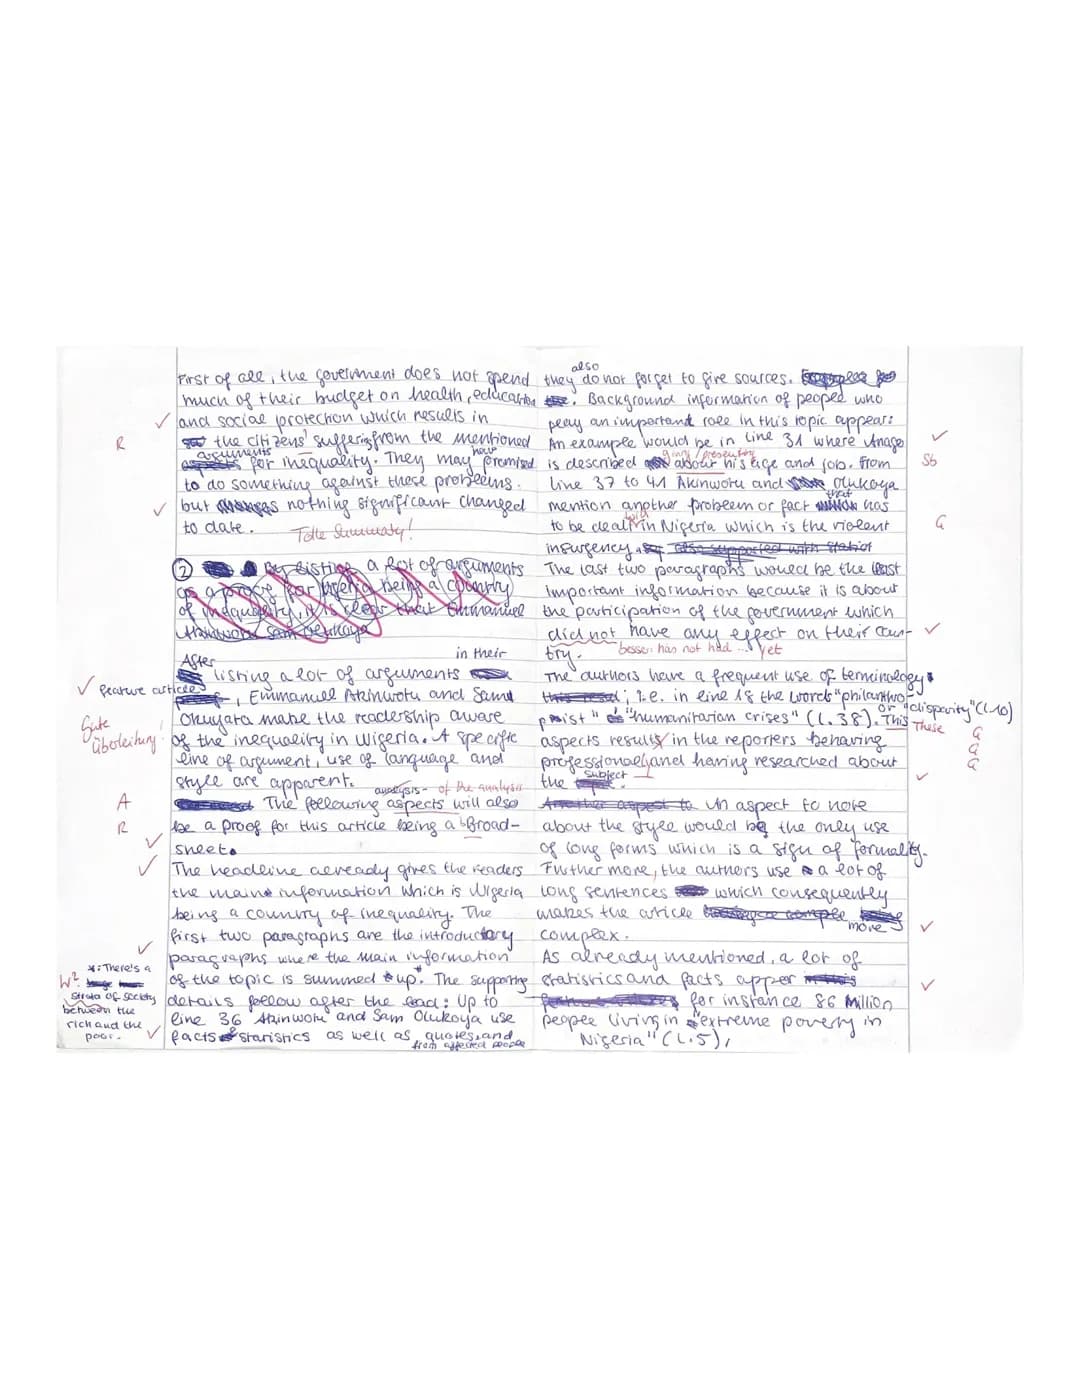 First of all, the government does not spend
much of their budget on health, education
✓ and social protection which results in
R the citizens' suffering from the mentioned
arguments
for inequality. They may have promised
to do something against these problems.
✓ but nothing significant changed
to date. Tolle Summary!
② By listing a lot of arguments
as a proof for Nigeria being a country
of inequality, it is clear that Emmanuel
Akinwotu Sam Olukoya
After in their
listing a lot of arguments
✓ feature article, Emmanuel Akinwotu and Sam
Gute Onuyata make the readership aware
Überleitung! of the inequality in Nigeria. A specific
line of argument, use of language and
style are apparent.
analysis- of the analysis
A The following aspects will also
R be a proof for this article being a Broad-
✓ sheet.
✓ The headline already gives the readers
the main information which is Nigeria
being a country of inequality. The
first two paragraphs are the introductory
✓ paragraphs where the main information
of the topic is summed *up*. The supporting
details follow after the lead: Up to
line 36 Akinwotu and Sam Olukoya use
✓ facts statistics as well as quotes and
from affected people
*: There's a
W²
strata of society
between the
rich and the
poor.
also
they do not forget to give sources.
Background information of people who
play an important role in this topic appear:
An example would be in line 31 where Anago ✓
giving / presenting
is described about his age and job. From Sb
line 37 to 41 Akinwotu and Olukoya
mention another problem or fact that has
to be dealt with in Nigeria which is the violent G
insurgency. also supported with
The last two paragraphs would be the least
important information because it is about
the participation of the government which
did not have any effect on their coun- ✓
try. besser: has not had ... yet
The authors have a frequent use of terminology
this result; i.e. in line 18 the words "philanthro-
or "disparity" (l.10)
pist" "humanitarian crises" (l.38). This These
aspects results in the reporters behaving G
professional and having researched about G
the subject G ✓
Another aspect to An aspect to note
about the style would be the only use
of long forms which is a sign of formality.
Further more, the authors use a lot of
long sentences which consequently
makes the article more ✓
complex.
As already mentioned, a lot of
statistics and facts apper ✓
for instance 86 Million
people living in "extreme poverty in
Nigeria" (l.5),